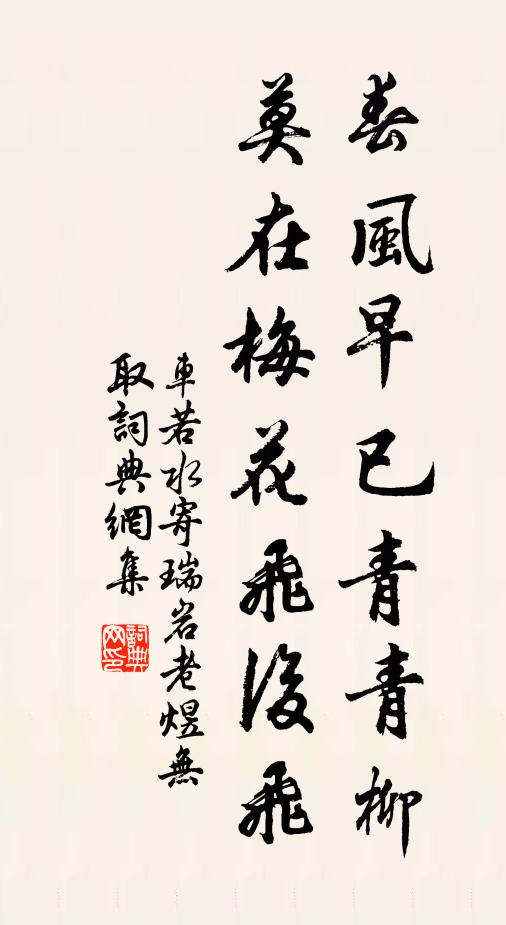 春風早已青青柳
莫在梅花飛後飛
車若水寄瑞岩老煜無
取詞典網集
詞典
网印